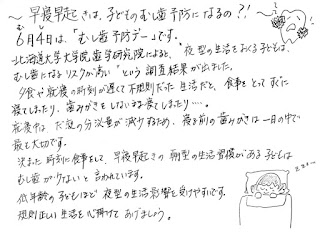 ～早寝早起きは、子どものむし歯予防になるの?!
6月4日は、"むし歯予防デー"です。
北海道大学大学院歯学研究院によると、夜型の生活をおくる子どもは、
むし歯になるリスクが高い"という調査結果が出ました。
夕食や就寝の時刻が遅くて不規則だった生活だと、食事をとってすぐに
寝てしまったり、歯みがきをしないまま寝てしまったり…
就寝中はだ液の分泌量が減少するため、寝る前の歯みがきは一日の中で
最も大切です。
決まった時刻に食事をして、早寝早起きの朝型の生活習慣がある子どもは
むし歯が少ないと言われています。
低年齢の子どもほど夜型の生活影響を受けやすいです。
規則正しい生活を心掛けてあげましょう。
zzz…